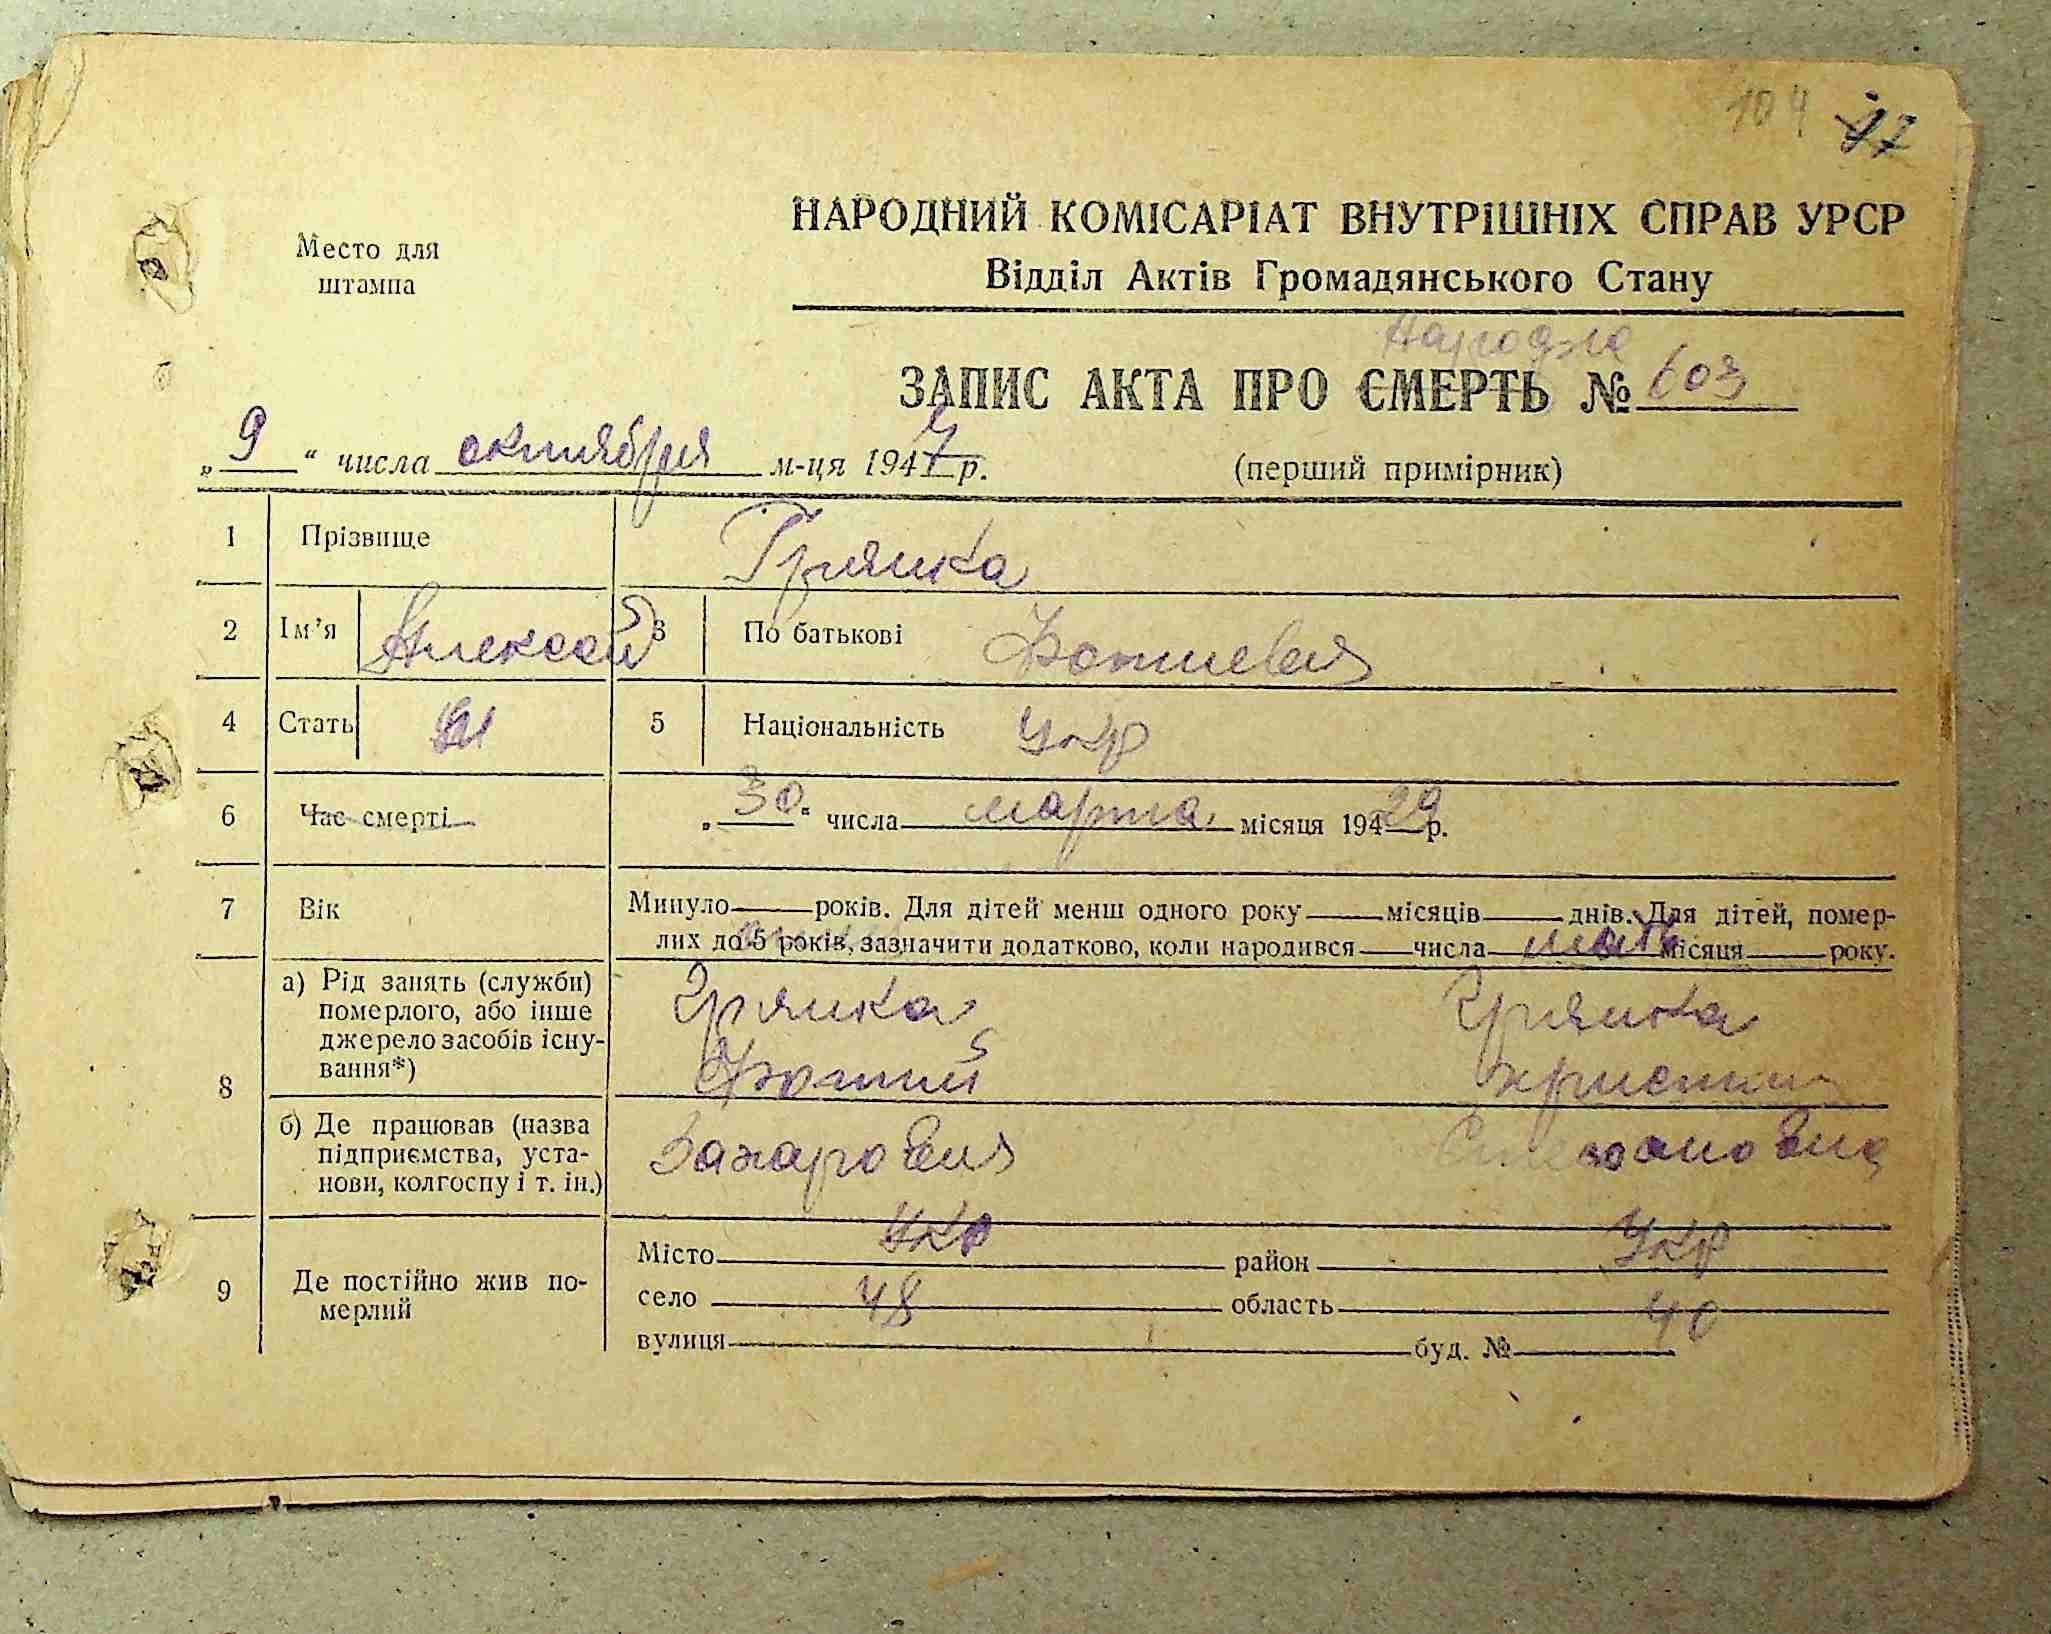 104 97
Место для
штампа
НАРОДНИЙ КОМІСАРІАТ ВНУТРІШНІХ СПРАВ УРСР
Відділ Актів Громадянського Стану
ЗАПИС АКТА ПРО СМЕРТЬ № 603
„ 9 “ числа октября м-ця 1947 р.
(перший примірник)
1 Прізвище Грянка
2 Ім’я Алексей 3 По батькові Фотиевич
4 Стать м 5 Національність Укр
6 Час смерті „ 30 “ числа марта місяця 194 29 р.
7 Вік Минуло років. Для дітей менш одного року місяців днів. Для дітей, помер-
лих до 5 років, зазначити додатково, коли народився числа місяця року.
мать
8 а) Рід занять (служби)
померлого, або інше
джерело засобів існу-
вання*)
Грянка Грянка
Фотий Христина
б) Де працював (назва
підприємства, уста-
нови, колгоспу і т. ін.)
Захарович Степановна
9 Де постійно жив по-
мерлий
Місто Укр район Укр
село 48 область 40
вулиця буд. №